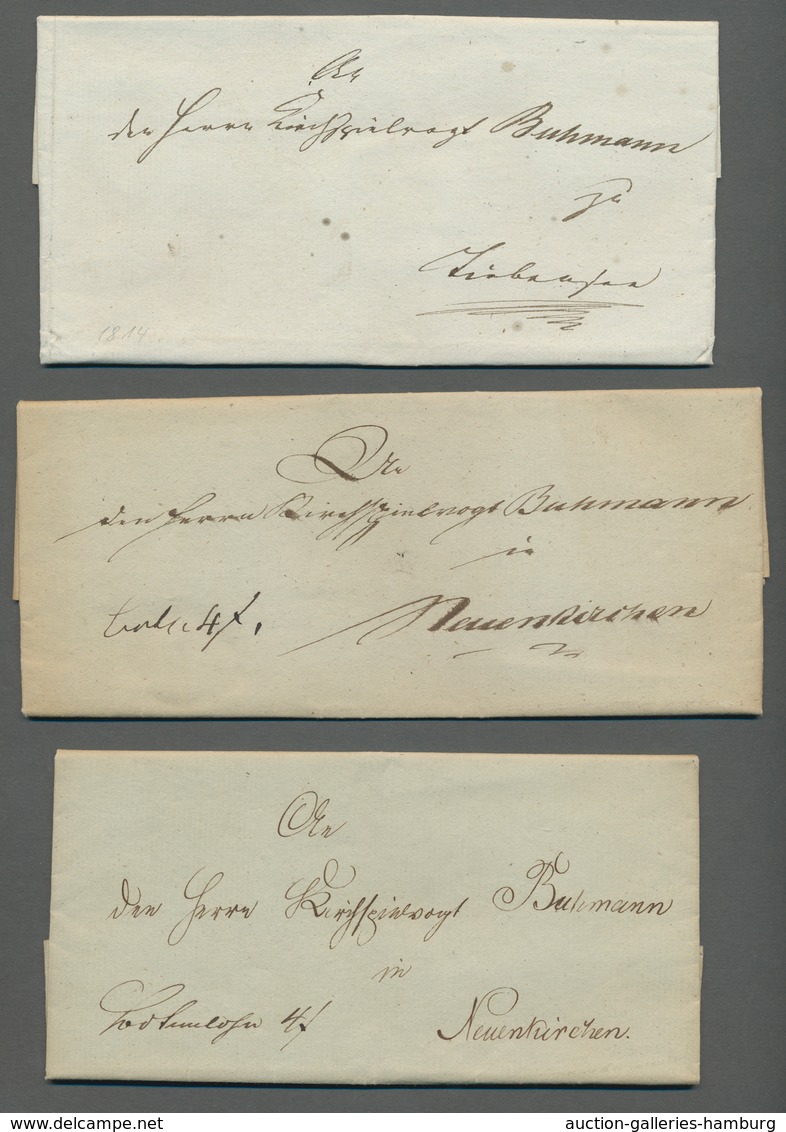 An
den Herrn Kirchspielvogt Buhmann
zu
Tiebensee
1814
An
den Herrn Kirchspielvogt Buhmann
in
4ß.
Neuenkirchen
An
den Herrn Kirchspielvogt Buhmann
in
Botenlohn 4ß
Neuenkirchen.
auction-galleries-hamburg